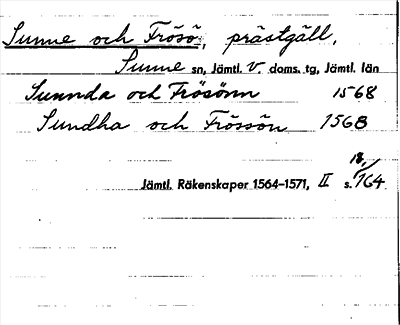 Sunne och Frösö, prästgäll,
Sunne sn, Jämtl. V. doms. tg, Jämtl. län
Sunnda och Frösönn 1568
Sundha och Frössön 1568
18,
Jämtl. Räkenskaper 1564-1571, II s. 164